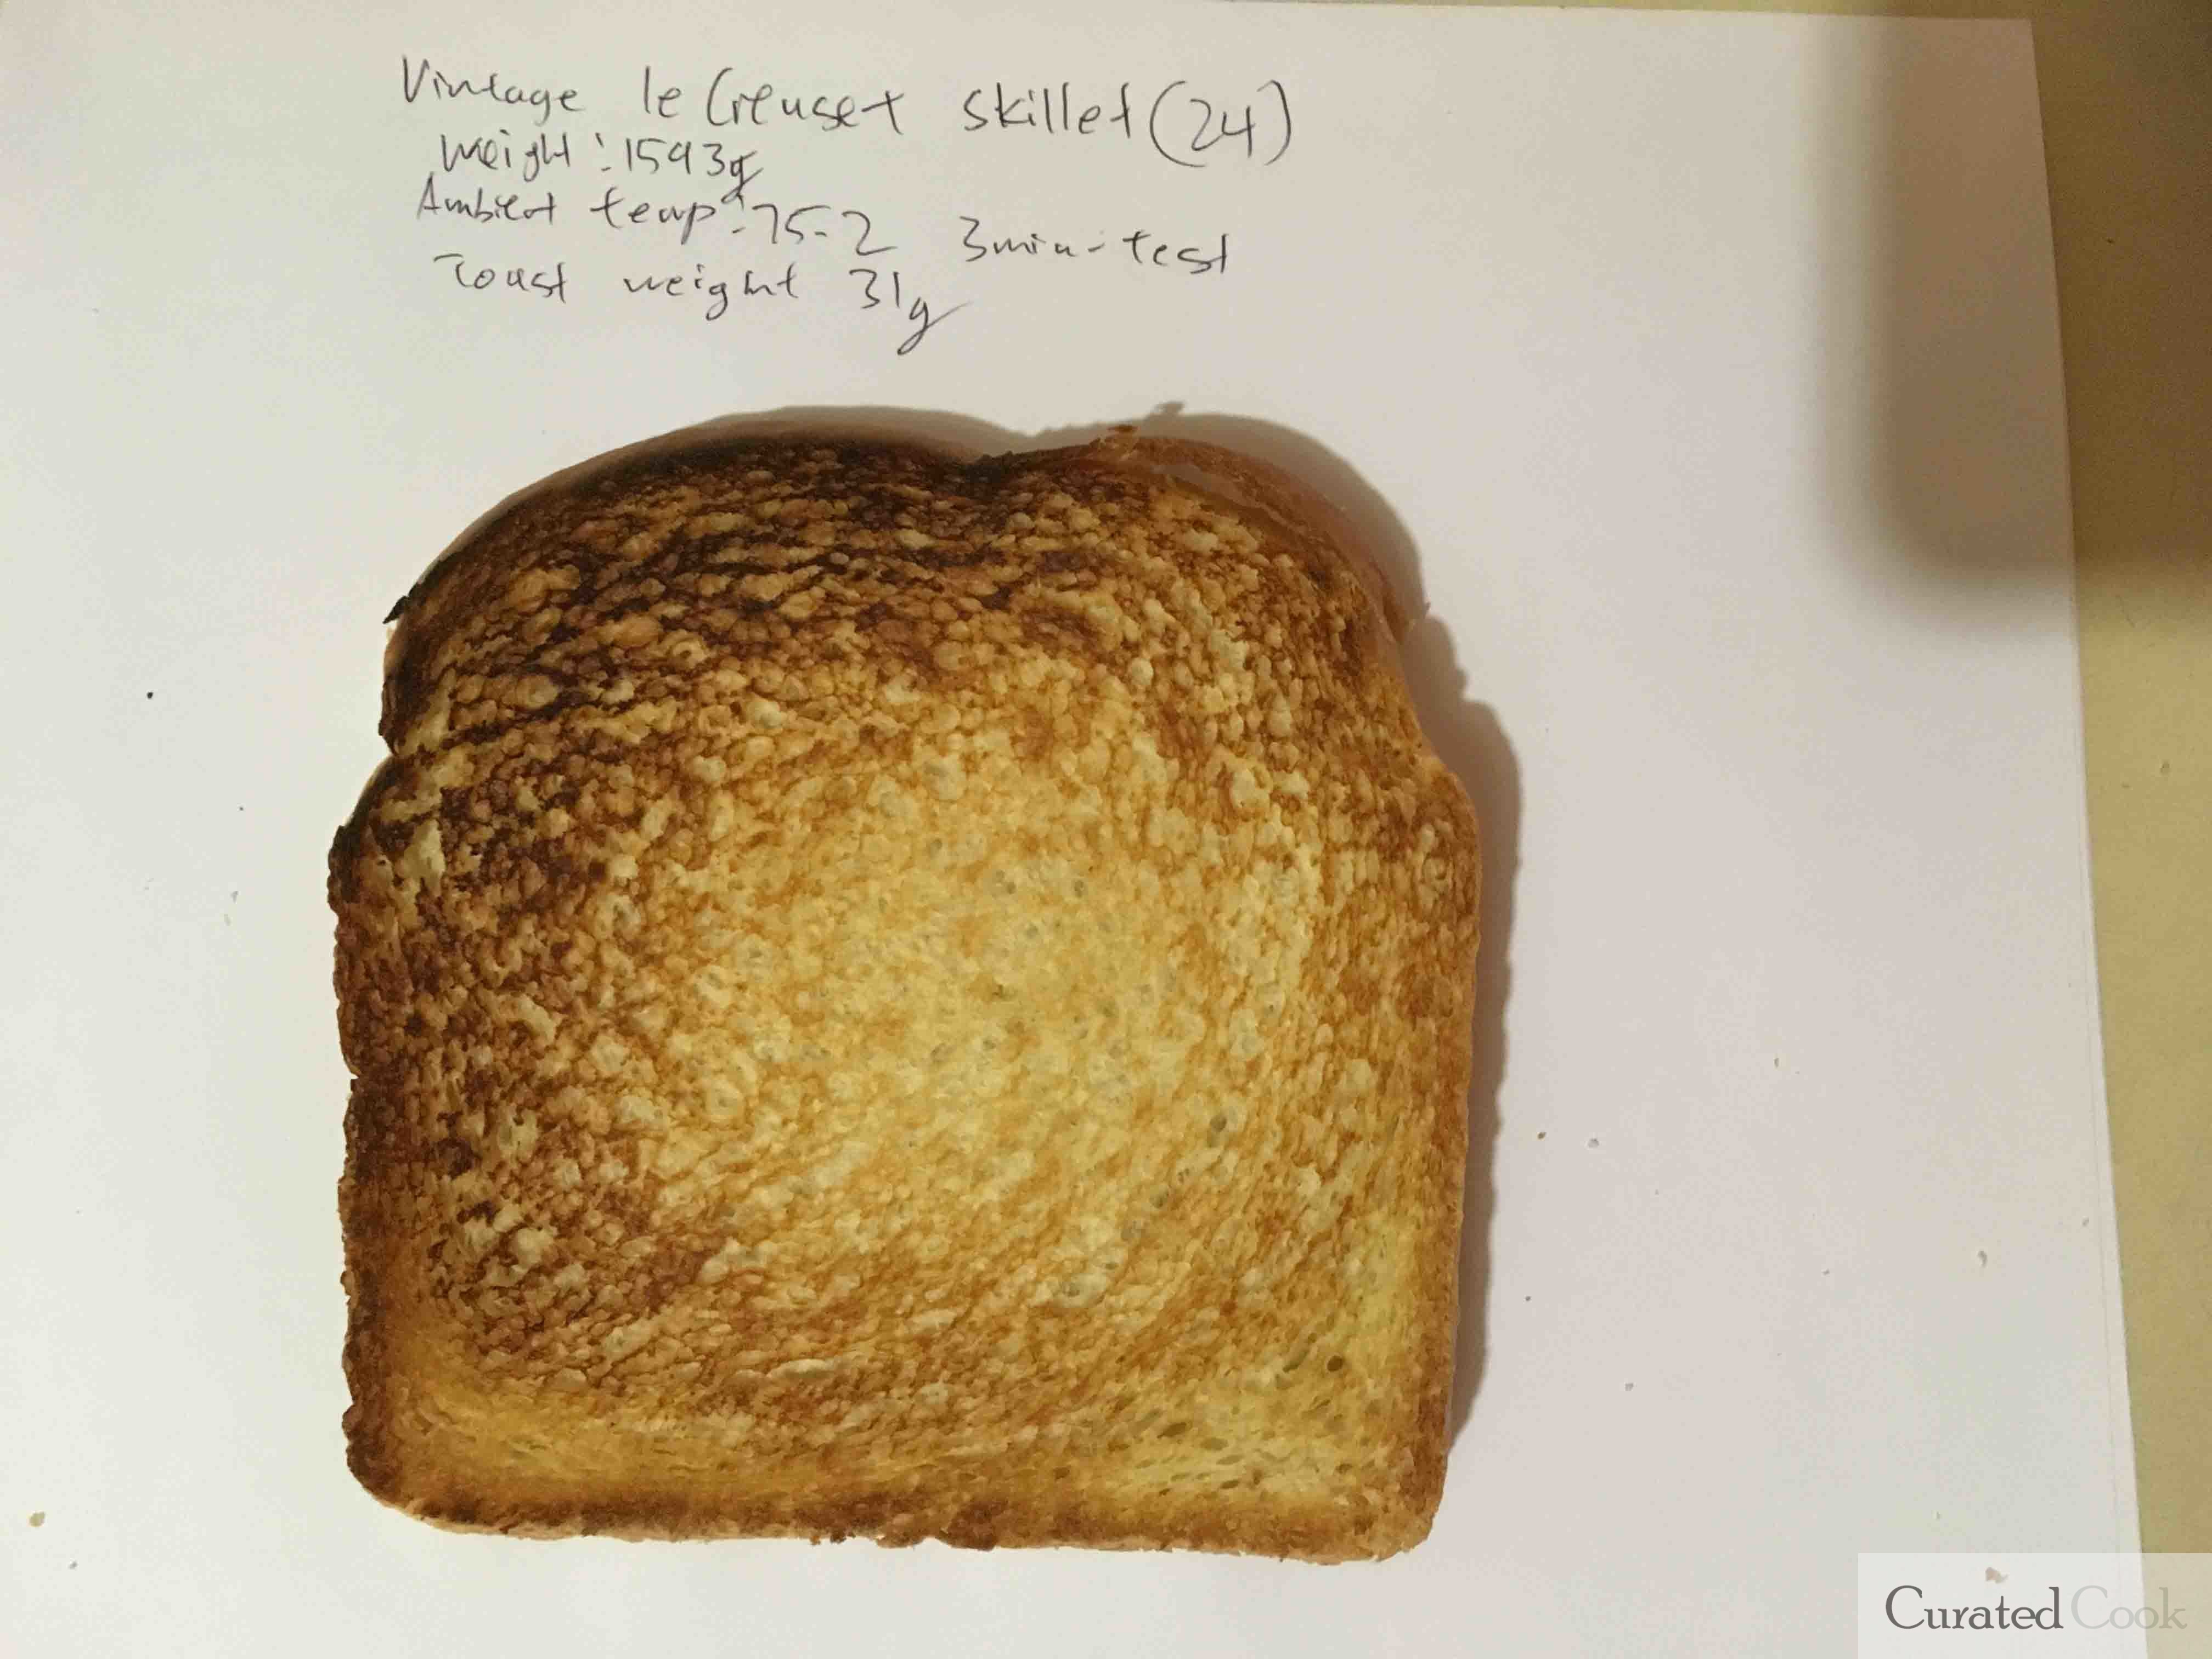 Vintage le Creuset skillet (24)
Weight: 1593g
Ambient temp: 75.2 3min-test
Toast weight 31g
Curated Cook